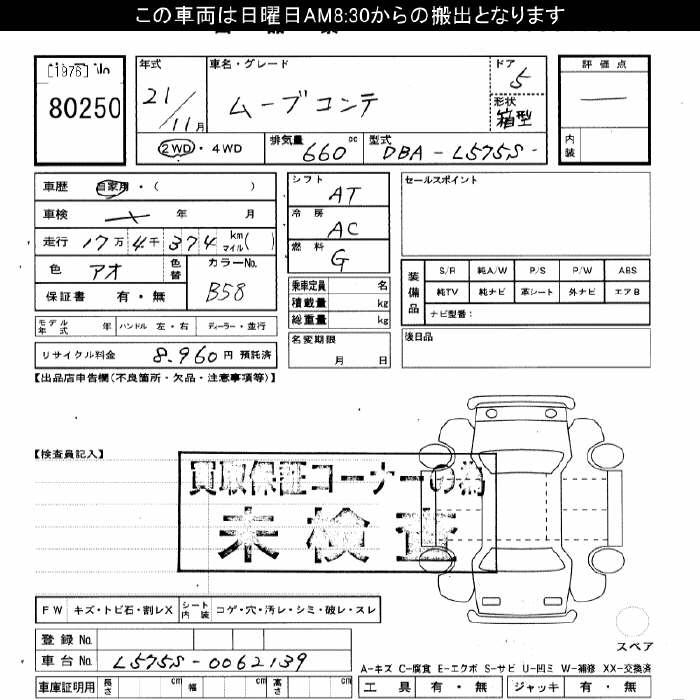 この車両は日曜日AM8:30からの搬出となります
[1976] No
80250
年式 車名・グレード ドア 評価点
21/11月 ムーブコンテ 5
形状 箱型
2WD・4WD 排気量 660 cc 型式 DBA-L575S- 内装
車歴 自家用・( )
車検 年 月
走行 17万4千374 km マイル( )
色 アオ 色替 カラーNo. B58
保証書 有・無
モデル年式 年 ハンドル 左・右 ディーラー・並行
リサイクル料金 8,960円 預託済
シフト AT
冷房 AC
燃料 G
乗車定員 名
積載量 kg
総重量 kg
名変期限 月 日
セールスポイント
装備品 S/R 純A/W P/S P/W ABS
純TV 純ナビ 革シート 外ナビ エアB
ナビ型番:
後日品
【出品店申告欄(不良箇所・欠品・注意事項等)】
【検査員記入】
買取保証コーナーの為
未検査
FW キズ・トビ石・割レX シート内装 コゲ・穴・汚レ・シミ・破レ・スレ
スペア
登録No.
車台No. L575S-0062139
A-キズ C-腐食 E-エクボ S-サビ U-凹ミ W-補修 XX-交換済
車庫証明用 長さ cm 幅 cm 高さ cm 工具 有・無 ジャッキ 有・無